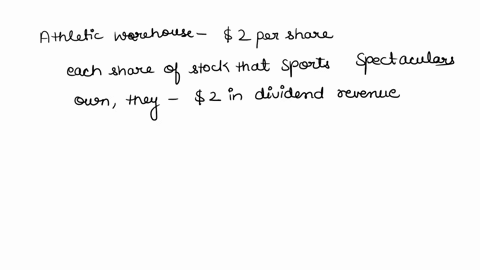 Athletic warehouse - $2 per share
each share of stock that Sports Spectaculars
own, they - $2 in dividend revenue